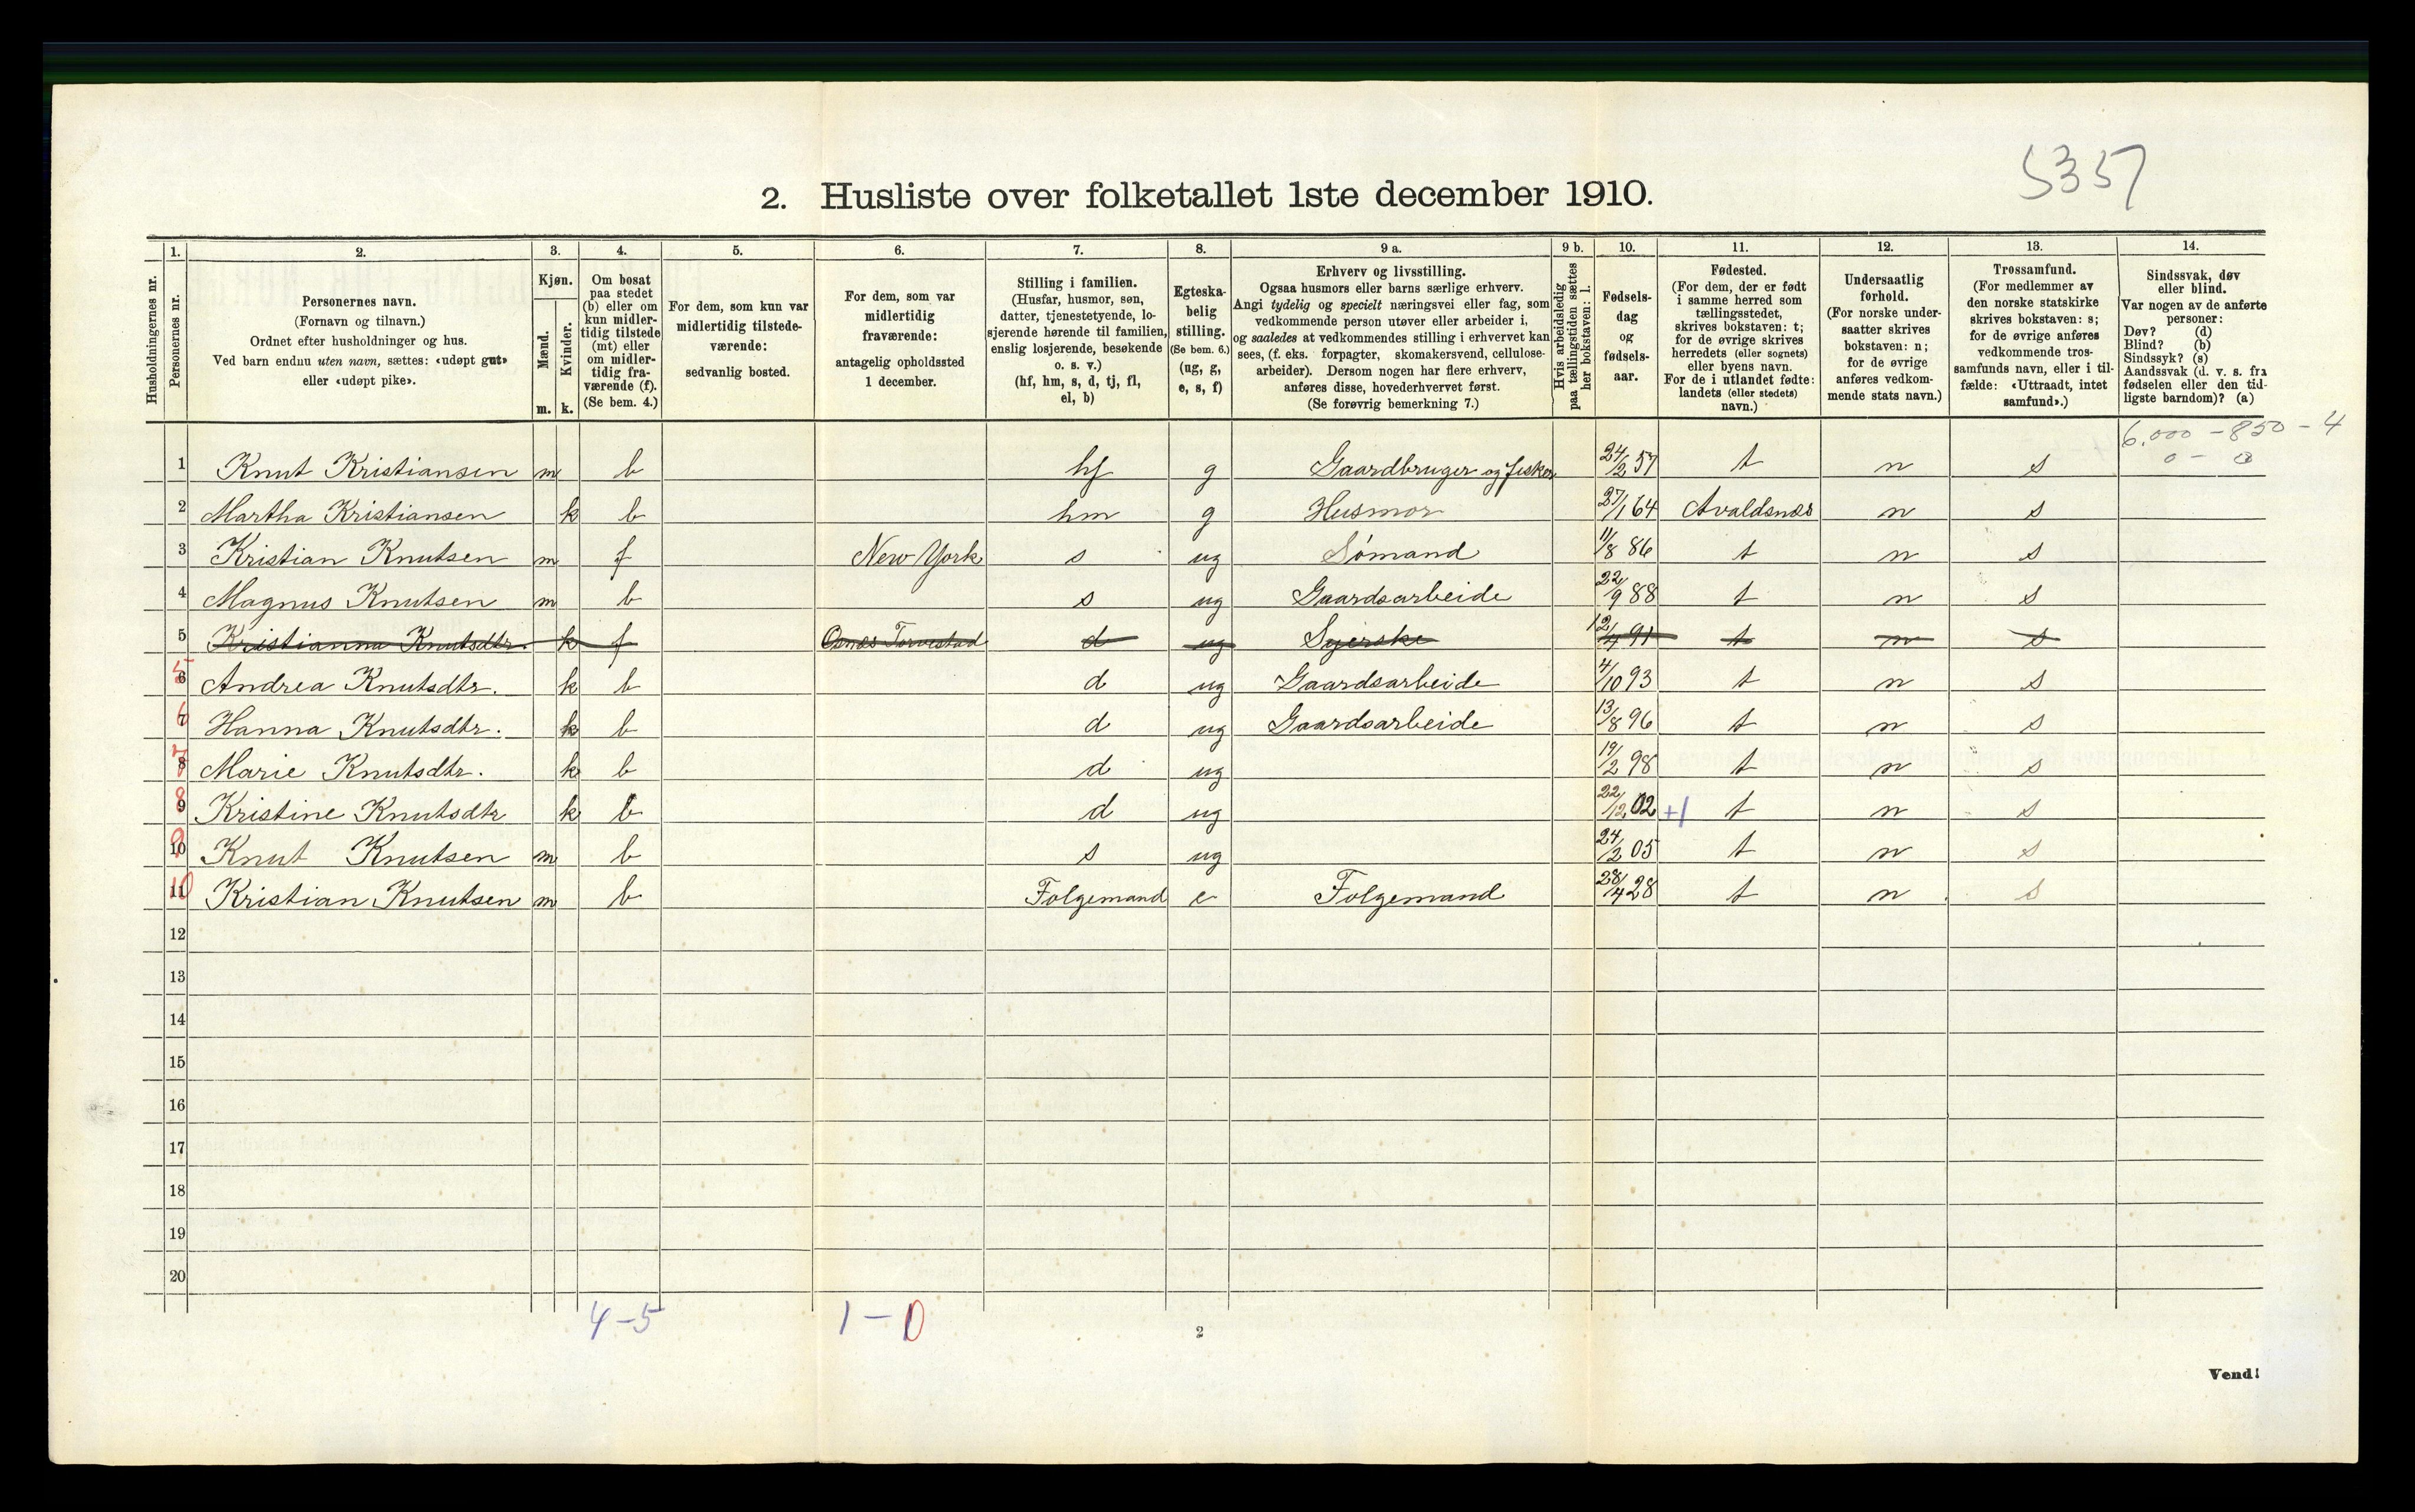 5357
2. Husliste over folketallet 1ste december 1910.
Husholdningernes nr.
1. Personernes nr.
2. Personernes navn.
(Fornavn og tilnavn.)
Ordnet efter husholdninger og hus.
Ved barn endnu uten navn, sættes: «udøpt gut»
eller «udøpt pike».
3. Kjøn.
Mænd. m.
Kvinder. k.
4. Om bosat
paa stedet
(b) eller om
kun midler-
tidig tilstede
(mt) eller
om midler-
tidig fra-
værende (f).
(Se bem. 4.)
5. For dem, som kun var
midlertidig tilstede-
værende:
sedvanlig bosted.
6. For dem, som var
midlertidig
fraværende:
antagelig opholdssted
1 december.
7. Stilling i familien.
(Husfar, husmor, søn,
datter, tjenestetyende, lo-
sjerende hørende til familien,
enslig losjerende, besøkende
o. s. v.)
(hf, hm, s, d, tj, fl,
el, b)
8. Egteska-
belig
stilling.
(Se bem. 6.)
(ug, g,
e, s, f)
9 a. Erhverv og livsstilling.
Ogsaa husmors eller barns særlige erhverv.
Angi tydelig og specielt næringsvei eller fag, som
vedkommende person utøver eller arbeider i,
og saaledes at vedkommendes stilling i erhvervet kan
sees, (f. eks. forpagter, skomakersvend, cellulose-
arbeider). Dersom nogen har flere erhverv,
anføres disse, hovederhvervet først.
(Se forøvrig bemerkning 7.)
9 b. Hvis arbeidsledig
paa tællingstiden sættes
her bokstaven: l.
10. Fødsels-
dag
og
fødsels-
aar.
11. Fødested.
(For dem, der er født
i samme herred som
tællingsstedet,
skrives bokstaven: t;
for de øvrige skrives
herredets (eller sognets)
eller byens navn.
For de i utlandet fødte:
landets (eller stedets)
navn.)
12. Undersaatlig
forhold.
(For norske under-
saatter skrives
bokstaven: n;
for de øvrige
anføres vedkom-
mende stats navn.)
13. Trossamfund.
(For medlemmer av
den norske statskirke
skrives bokstaven: s;
for de øvrige anføres
vedkommende tros-
samfunds navn, eller i til-
fælde: «Uttraadt, intet
samfund».)
14. Sindssvak, døv
eller blind.
Var nogen av de anførte
personer:
Døv? (d)
Blind? (b)
Sindssyk? (s)
Aandssvak (d. v. s. fra
fødselen eller den tid-
ligste barndom)? (a)
6.000 - 850 - 4
0 - 0
1 Knut Kristiansen m b hf g Gaardbruger og fisker 24/2 57 t n s
2 Martha Kristiansen k b hm g Husmor 27/1 64 Avaldsnes n s
3 Kristian Knutsen m f New York s ug Sømand 11/8 86 t n s
4 Magnus Knutsen m b s ug Gaardsarbeide 22/9 88 t n s
5 Kristianna Knutsdtr. k f Torvestad d ug Syerske 12/4 91 t n s
5 6 Andrea Knutsdtr. k b d ug Gaardsarbeide 4/10 93 t n s
6 7 Hanna Knutsdtr. k b d ug Gaardsarbeide 13/8 96 t n s
7 8 Marie Knutsdtr. k b d ug 19/2 98 t n s
8 9 Kristine Knutsdtr k b d ug 22/12 02 +1 t n s
9 10 Knut Knutsen m b s ug 24/2 05 t n s
10 11 Kristian Knutsen m b Folgemand e Folgemand 28/4 28 t n s
12
13
14
15
16
17
18
19
20
4-5 1-0
2
Vend!